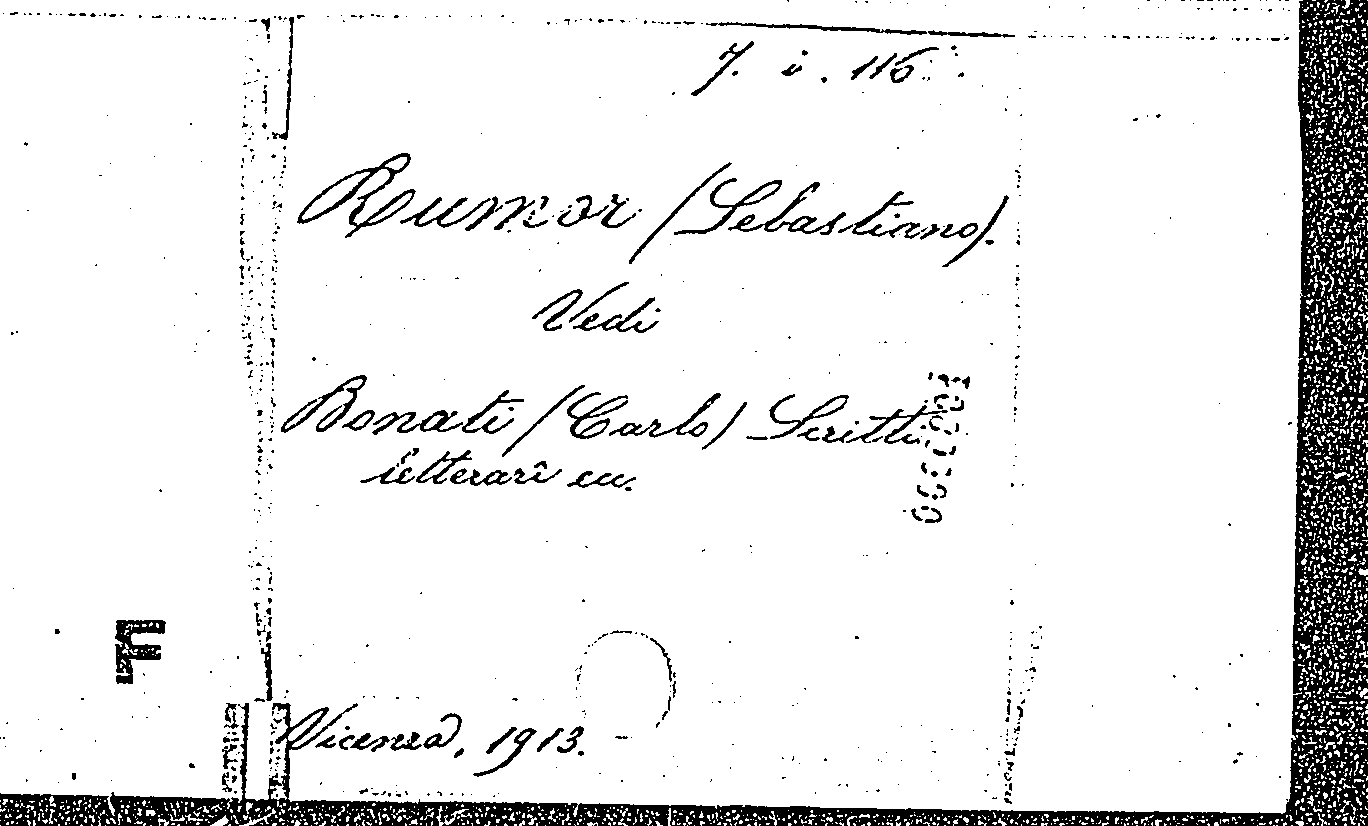 7. i. 116.
Rumor (Sebastiano).
Vedi
Bonati (Carlo) Scritti
letterarî ecc.
F
Vicenza, 1913.